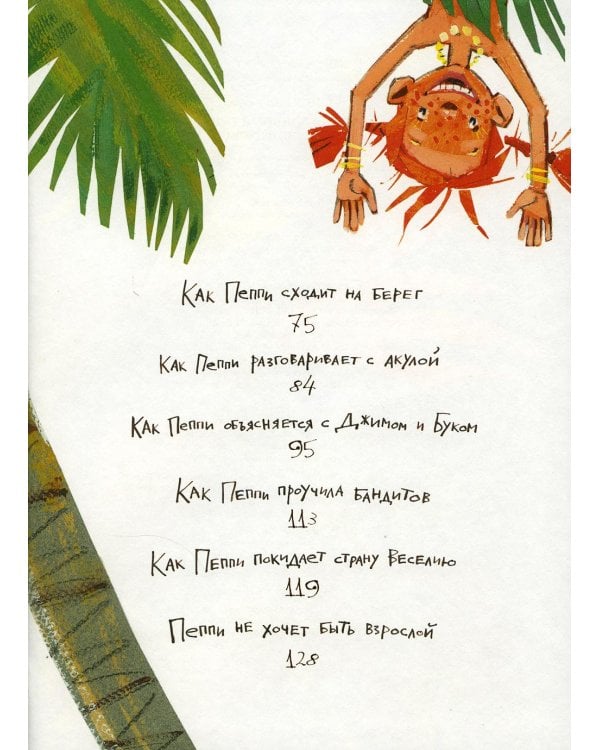 Как Пеппи сходит на берег
75
Как Пеппи разговаривает с акулой
84
Как Пеппи объясняется с Джимом и Буком
95
Как Пеппи проучила бандитов
113
Как Пеппи покидает страну Веселию
119
Пеппи не хочет быть взрослой
128